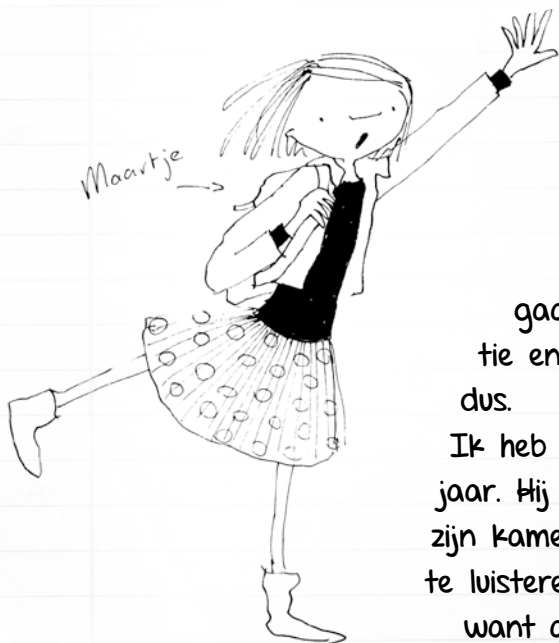 Maartje
gaa
tie en
dus.
Ik heb
jaar. Hij
zijn kame
te luistere
want d